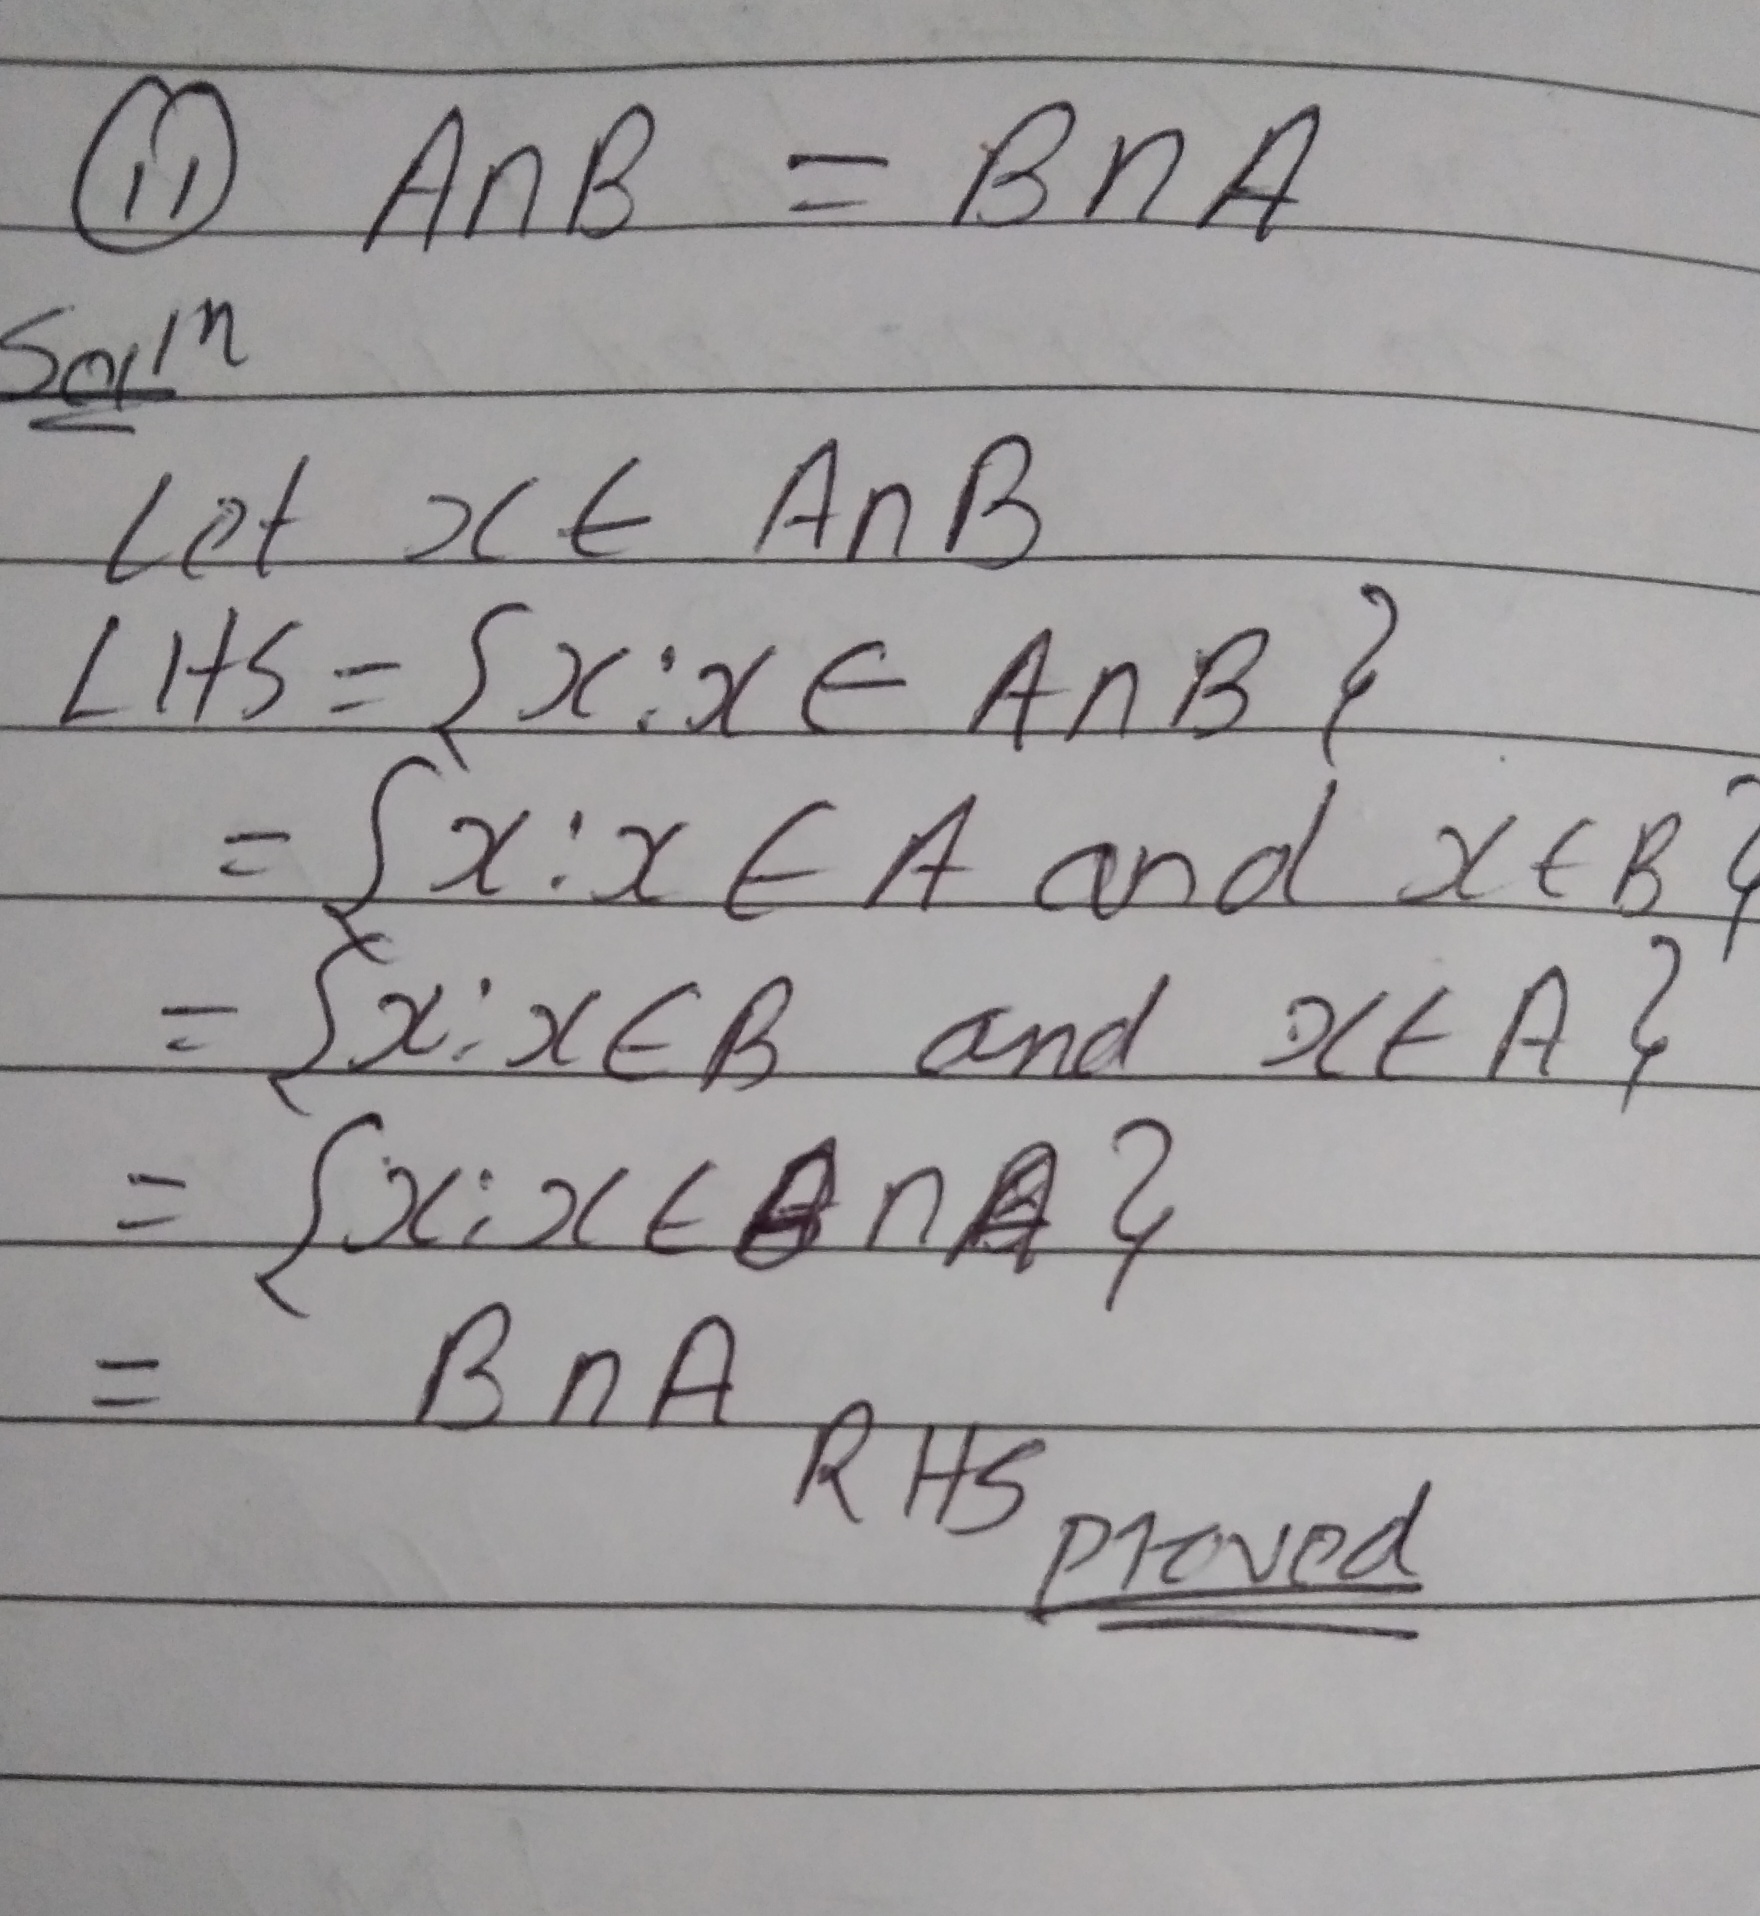 (ii) A∩B = B∩A
Solⁿ
Let x ∈ A∩B
LHS = {x : x ∈ A∩B}
= {x : x ∈ A and x ∈ B}
= {x : x ∈ B and x ∈ A}
= {x : x ∈ B∩A}
= B∩A
RHS
proved